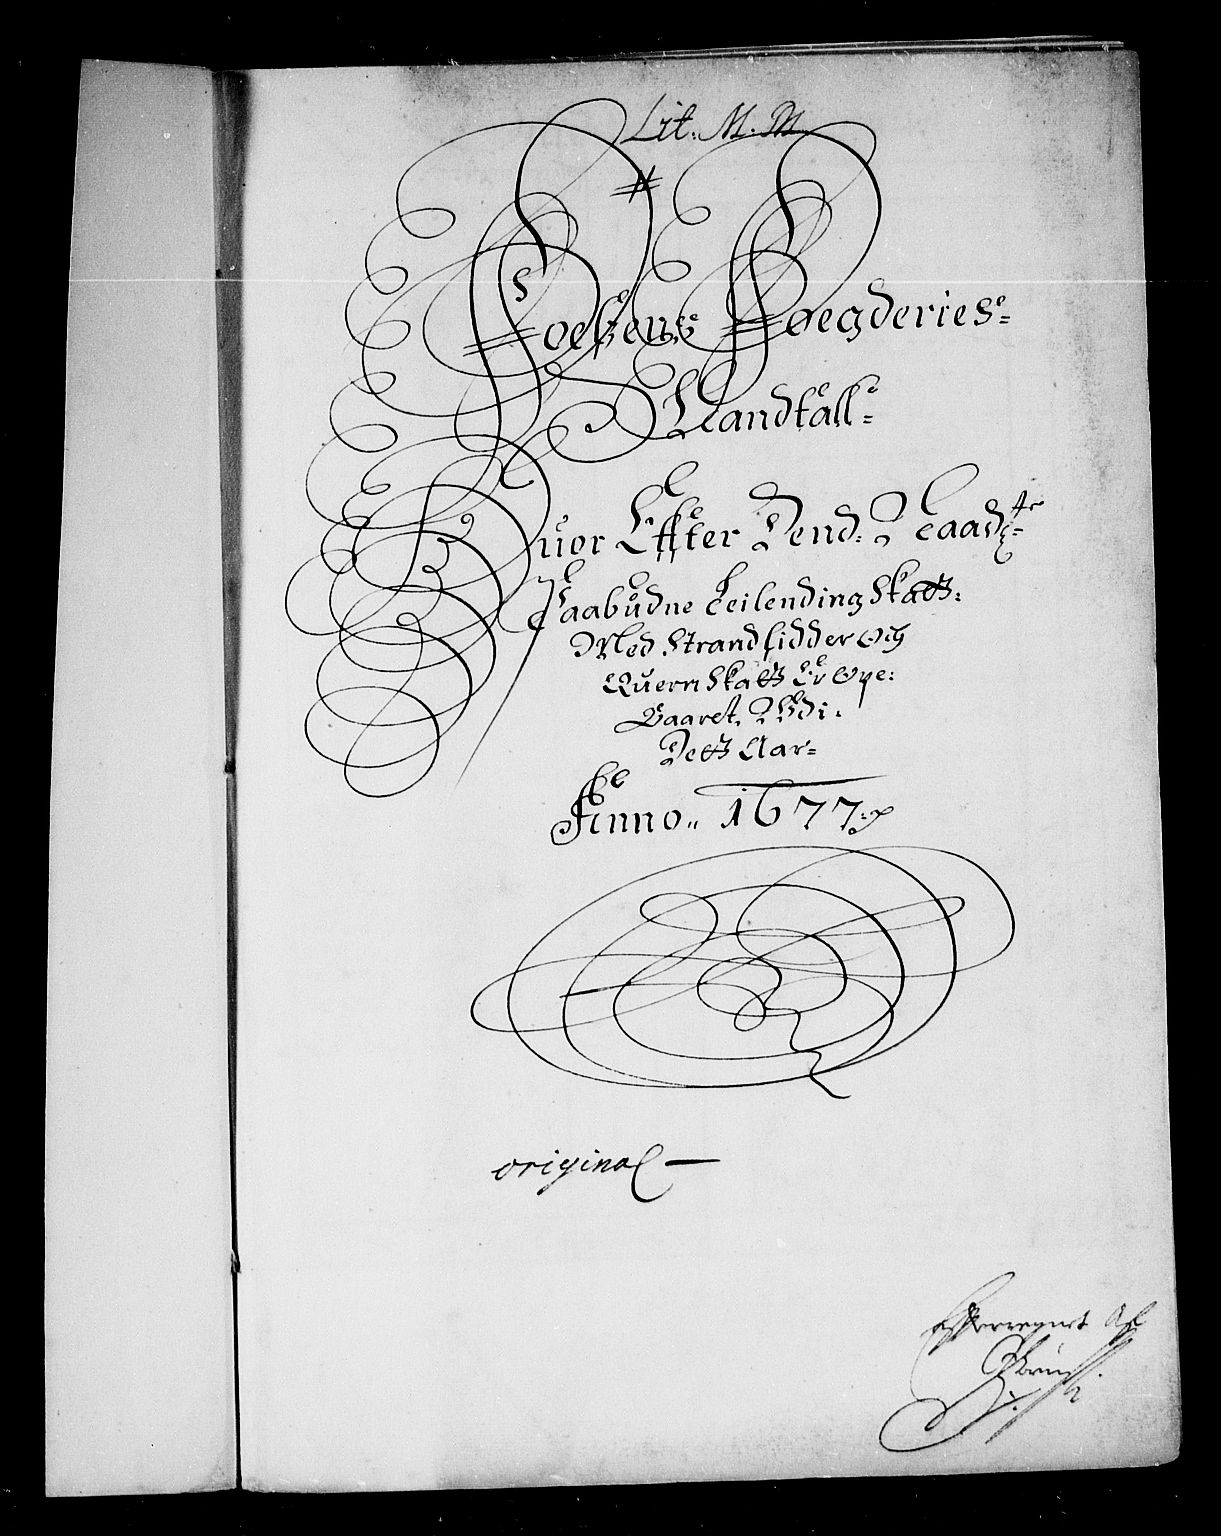 Lit. M. M
Foesens Foegderies
Mandtall
Huor Effter Dend Naadigste
Paabudne Leilending Skatt
Med Strandsidder Och
Quern Skatt Er Ope
Baaret Udi
Dett Aar
Anno 1677
original
Effterregnet Af